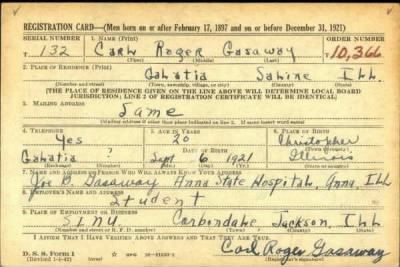 REGISTRATION CARD—(Men born on or after February 17, 1897 and on or before December 31, 1921)
SERIAL NUMBER 1. NAME (Print) ORDER NUMBER
T 132 Carl Roger Gasaway T10,366
(First) (Middle) (Last)
2. PLACE OF RESIDENCE (Print)
Galatia Saline Ill
(Number and street) (Town, township, village, or city) (County) (State)
[THE PLACE OF RESIDENCE GIVEN ON THE LINE ABOVE WILL DETERMINE LOCAL BOARD
JURISDICTION; LINE 2 OF REGISTRATION CERTIFICATE WILL BE IDENTICAL]
3. MAILING ADDRESS
Same
[Mailing address if other than place indicated on line 2. If same insert word same]
4. TELEPHONE 5. AGE IN YEARS 6. PLACE OF BIRTH
Yes 20 Christopher
DATE OF BIRTH (Town or county)
Galatia Sept 6 1921 Illinois
7. NAME AND ADDRESS OF PERSON WHO WILL ALWAYS KNOW YOUR ADDRESS
Joe B. Gasaway Anna State Hospital, Anna, Ill
8. EMPLOYER'S NAME AND ADDRESS
Student
9. PLACE OF EMPLOYMENT OR BUSINESS
SINU Carbondale Jackson, Ill
(Number and street or R. F. D. number) (Town) (County) (State)
I AFFIRM THAT I HAVE VERIFIED ABOVE ANSWERS AND THAT THEY ARE TRUE.
D. S. S. Form 1
(Revised 1-6-42) Carl Roger Gasaway